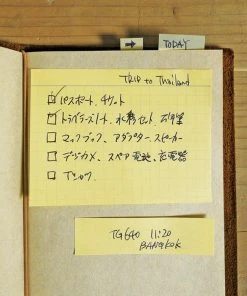 ➡ TODAY
TRIP to Thailand
パスポート、チケット
トラベラーズノート 水彩セット
マックブック、アダプター、スピーカー
デジカメ、スペア電池、充電器
TG640 11:20
BANGKOK